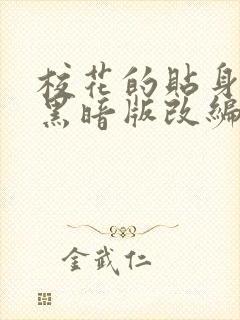 校花的貼身
黑暗版改編
金武仁